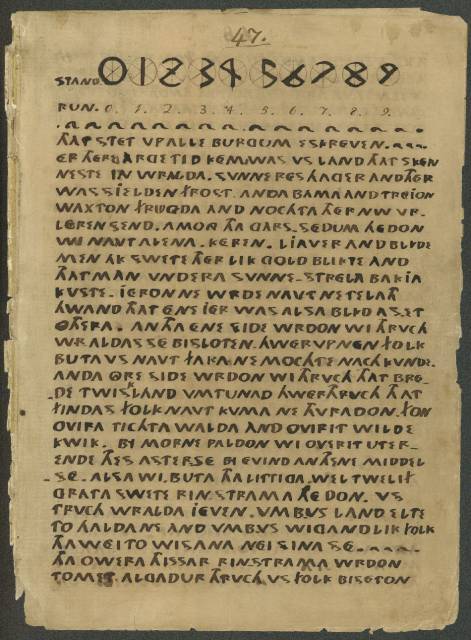 47.
STAND. 0 1 2 3 4 5 6 7 8 9
RUN. 0. 1. 2. 3. 4. 5. 6. 7. 8. 9.
THAT STET VPALLE BURGUM ESKREVEN.
ER THERE ARGE TID KEM WAS VS LAND THAT SKEN
NESTE IN WRALDA. SVNNE RES HAGER AND THER
WAS SIELDEN FROST. ANDA BAMA AND TREION
WAXTON FRUGDA AND NOCHTA THER NW VR-
LEREN SEND. AMONG THA GARS-SEDUM HEDON
WI NAVT ALENA. KEREN. LIAVER AND BLIDE
MEN AK SWETE THER LIK GOLD BLIKTE AND
THAT MAN VNDERA SUNNE-STRELA BAKIA
KVSTE. IERON NE WRDE NAVT NE TELATH
HWAND THAT ENE IER WAS ALSA BLID AS ET
OTHERA. ANTHA ENE SIDE WRDON WI THRVCH
WRALDAS SE BISLOTEN. HWERVP NEN FOLK
BUTA VS NAVT FARA NE MOCHTE NACH KVNDE.
ANDA ORE SIDE WRDON WI THRVCH THAT BRE-
DE TWISKLAND VMTUNAD HWERTHRVCH THAT
FINDAS FOLK NAVT KUMA NE THVRADON. FON
OVIRA TICHTA WALDA AND OVIR IT WILDE
KWIK. BI MORNE PALDON WI OVER IT UTER-
ENDE THES ASTERSE. BI EVIND AN THENE MIDDEL
-SE. ALSA WI. BUTA THA LITTIGA. WEL TWELIF
GRATA SWETE RINSTRAMA HEDON. VS
THRVCH WRALDA IEVEN. VMB VS LAND ELTE
TO HALDANE AND VMB VS WIGANDLIK FOLK
THA WEI TO WISANA NEI SINA SE.
THA OWERA THISSAR RINSTRAMA WRDON
TOMET ALGADUR THRVCH VS FOLK BISETON